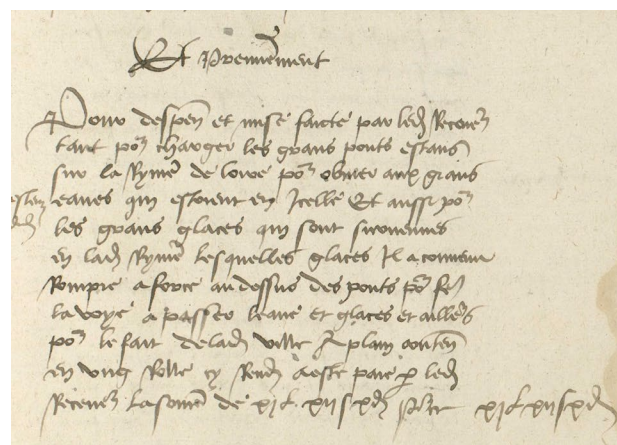 Et Premierement
Pour despen et mise faicte par led Recever
tant por charger les grans ponts estans
sur la Ryviere de loire por obvier aux grans
eaues qui estoient en Icelle Et aussi por
les grans glaces qui sont survenues
en lad Ryviere lesquelles glaces Il a convenu
Rompre a force au dessus des ponts por
la voye a passer leaue et glaces et ailleurs
por le fait de lad ville A plain conten
en ung Rolle cy Rendu a este paie par led
Recever La some de